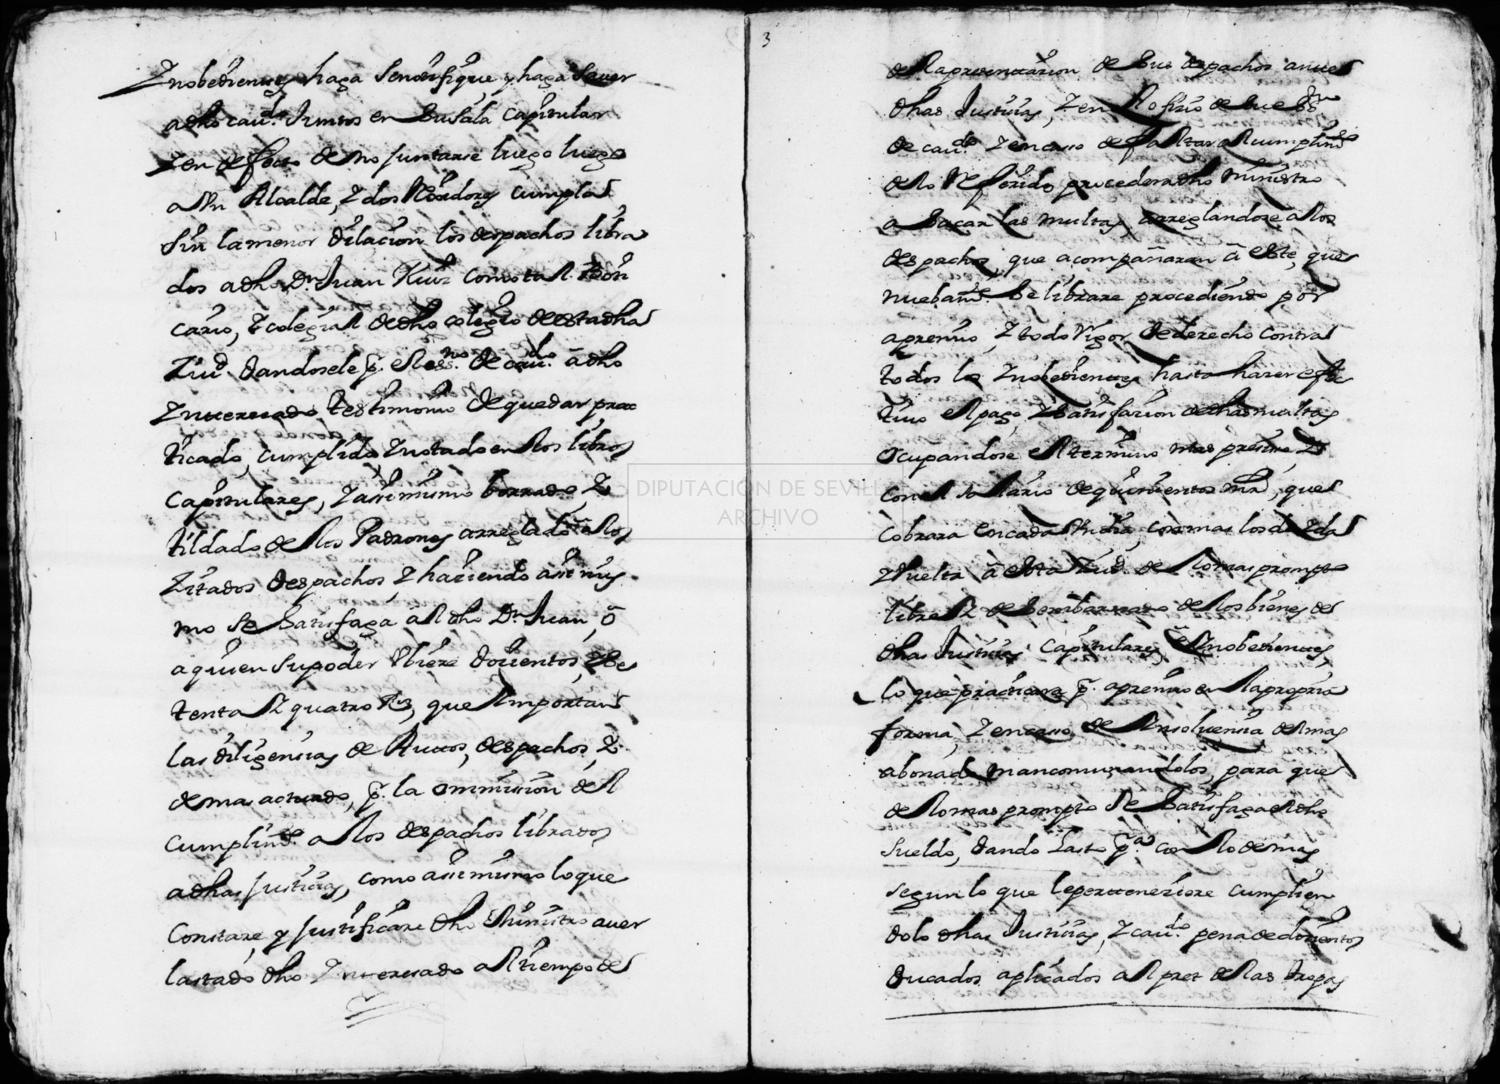 Ynobedientes haga se notifique, y haga Saver
a dho cavdo. Juntos en Su Sala Capitular
Y en defecto de no juntarse luego luego
a Vn Alcalde, Y dos Rexidores cumplan
Sin la menor dilacion los despachos libra
dos a dho Dn. Juan Ruiz como tal
cario, Y colegial de dho colegio de esta dha
Ziud. dandosele pr. el Essno. de cavdo. a dho
Ynteresado testimonio de quedar prac
ticado, cumplido Y notado en los libros
Capitulares, Y asimismo borrado, Y
tildado de los Padrones arreglado a los
Zitados despachos, Y haziendo asimis-
mo Se Satisfaga al dho Dn. Juan, o
a quien Su poder Ubiere doszientos, Y Se
tenta Y quatro Rs, que Importan
las diligencias de Autos, despachos, Y
demas actuado, pr. la ommission del
Cumplimto. a los despachos librados
a dhas Justicias, como asimismo lo que
Constare, y justificare dho Ministro aver
lastado dho Ynteresado al tiempo de
3
la presentazion de Sus despachos antes
dhas Justicias, Y en
de cavdo. Y en caso de faltar al cumplimto
de lo Referido, procedera dho Ministro
a Sacar las multas, arreglandose a los
despachos, que acompañaran a este, que
nuebamte. Se librare procediendo por
apremio, Y todo Rigor de derecho contra
todos los Ynobedientes hasta hazer efec
tivo el pago, Y Satisfazion de dhas multas
Ocupandose el termino mas preciso, Y
Con el Salario de quinientos mrs, que
Cobrara en cada Vn dia, con mas los de Yda
Y buelta a esta Ziud. de lo mas prompto
libre Y desembarazado de los bienes de
dhas Justicias Capitulares, e Ynobedientes,
lo que practicara pr. apremio en la propria
forma, Y en caso de Insolvencia de mas
abonados mancomunandolos, para que
de lo mas prompto Se Satisfaga dho
Sueldo, dando Lasto pa. con los demas
Segun lo que le perteneziere cumplien
dolo dhas Justicias, Y cavdo. pena de doszientos
ducados aplicados al pret de las tropas
DIPUTACIÓN DE SEVILLA
ARCHIVO